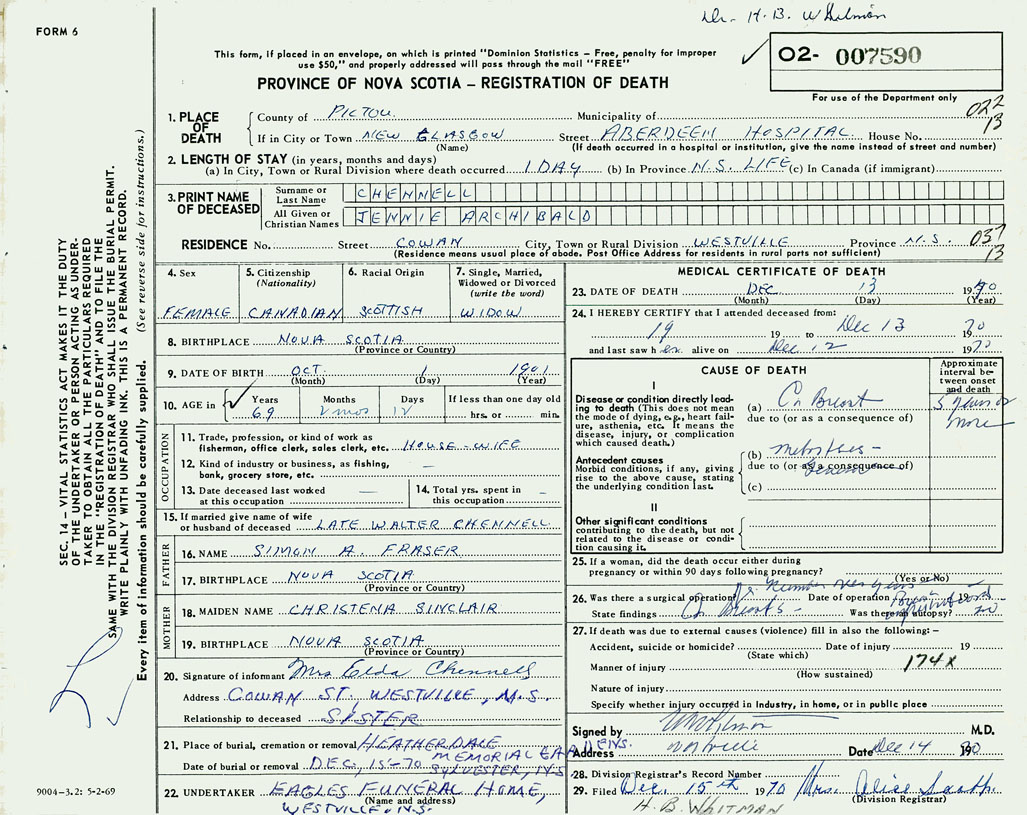 Dr. H. B. Whitman
FORM 6
This form, if placed in an envelope, on which is printed "Dominion Statistics – Free, penalty for improper
use $50," and properly addressed will pass through the mail "FREE"
02- 007590
PROVINCE OF NOVA SCOTIA – REGISTRATION OF DEATH
For use of the Department only
022
13
1. PLACE OF DEATH
County of PICTOU Municipality of
If in City or Town NEW GLASGOW Street ABERDEEN HOSPITAL House No.
(Name) (If death occurred in a hospital or institution, give the name instead of street and number)
2. LENGTH OF STAY (in years, months and days)
(a) In City, Town or Rural Division where death occurred 1 DAY (b) In Province N.S. LIFE (c) In Canada (if immigrant)
3. PRINT NAME OF DECEASED
Surname or Last Name CHENNELL
All Given or Christian Names JENNIE ARCHIBALD
RESIDENCE No. Street COWAN City, Town or Rural Division WESTVILLE Province N.S. 037
13
(Residence means usual place of abode. Post Office Address for residents in rural parts not sufficient)
4. Sex FEMALE
5. Citizenship (Nationality) CANADIAN
6. Racial Origin SCOTTISH
7. Single, Married, Widowed or Divorced (write the word) WIDOW
8. BIRTHPLACE NOVA SCOTIA
(Province or Country)
9. DATE OF BIRTH OCT. 1 1901
(Month) (Day) (Year)
10. AGE in Years 69 Months 2 mos Days 12 If less than one day old hrs. or min.
OCCUPATION
11. Trade, profession, or kind of work as
fisherman, office clerk, sales clerk, etc. HOUSE-WIFE
12. Kind of industry or business, as fishing,
bank, grocery store, etc. –
13. Date deceased last worked
at this occupation —
14. Total yrs. spent in
this occupation –
15. If married give name of wife
or husband of deceased LATE WALTER CHENNELL
FATHER
16. NAME SIMON A. FRASER
17. BIRTHPLACE NOVA SCOTIA
(Province or Country)
MOTHER
18. MAIDEN NAME CHRISTENA SINCLAIR
19. BIRTHPLACE NOVA SCOTIA
(Province or Country)
20. Signature of informant Mrs Elda Chennell
Address COWAN ST. WESTVILLE, N.S.
Relationship to deceased SISTER
21. Place of burial, cremation or removal HEATHERDALE
MEMORIAL GARDENS.
Date of burial or removal DEC, 15-70 SYLVESTER, N.S
22. UNDERTAKER EAGLES FUNERAL HOME,
(Name and address)
WESTVILLE N.S.
MEDICAL CERTIFICATE OF DEATH
23. DATE OF DEATH DEC 13 1970
(Month) (Day) (Year)
24. I HEREBY CERTIFY that I attended deceased from:
19 19 to Dec 13 1970
and last saw her alive on Dec 12 1970
CAUSE OF DEATH
Approximate interval between onset and death
I
Disease or condition directly leading to death (This does not mean
the mode of dying, e.g., heart failure, asthenia, etc. It means the
disease, injury, or complication
which caused death.)
(a) Ca Breast 5 years or more
due to (or as a consequence of)
Antecedent causes
Morbid conditions, if any, giving
rise to the above cause, stating
the underlying condition last.
(b)
due to (or as a consequence of)
(c)
II
Other significant conditions
contributing to the death, but not
related to the disease or condition causing it.
25. If a woman, did the death occur either during
pregnancy or within 90 days following pregnancy?
(Yes or No)
26. Was there a surgical operation? Date of operation 19
State findings Ca Breasts – Was there an autopsy? no
27. If death was due to external causes (violence) fill in also the following: –
Accident, suicide or homicide? Date of injury 19
(State which)
Manner of injury 174x
(How sustained)
Nature of injury
Specify whether injury occurred in Industry, in home, or in public place
Signed by M.D.
Address Westville Date Dec 14 1970
28. Division Registrar's Record Number
29. Filed Dec. 15th 1970 Mrs. Alice
(Division Registrar)
H. B. WHITMAN
SEC. 14 – VITAL STATISTICS ACT MAKES IT THE DUTY
OF THE UNDERTAKER OR PERSON ACTING AS UNDERTAKER TO OBTAIN ALL THE PARTICULARS REQUIRED
IN THE "REGISTRATION OF DEATH" AND TO FILE THE
SAME WITH THE DIVISION REGISTRAR WHO SHALL ISSUE THE BURIAL PERMIT.
WRITE PLAINLY WITH UNFADING INK. THIS IS A PERMANENT RECORD.
Every item of information should be carefully supplied. (See reverse side for instructions.)
9004-3.2: 5-2-69